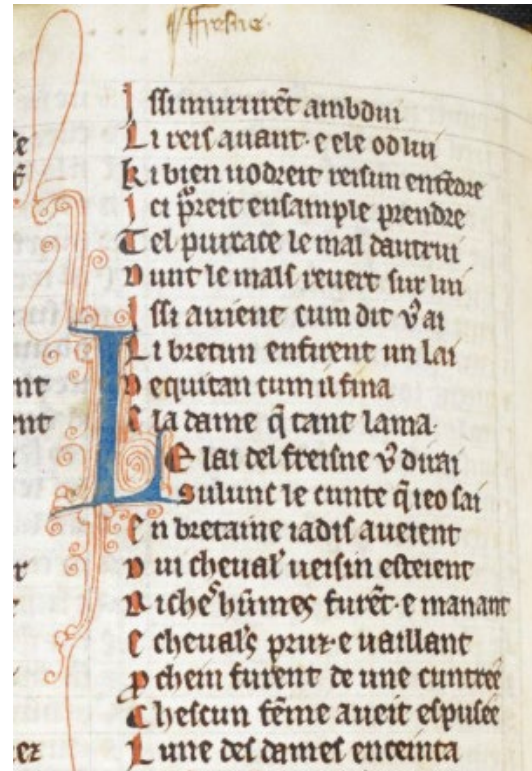 ffresne
I ssi mururēt ambdui
L i reis auant · e ele od lui
K i bien uodreit reisun entēdre
I ci p̄reit ensample prendre
T el purcace le mal dautrui
D unt le mals reuert sur lui
I ssi auient cum dit v̄ ai
L i bretun enfirent un lai
D equitan cum il fina
E la dame q̄ tant lama ·
L E lai del freisne v̄ dirai
S ulunc le cunte q̄ ieo sai
E n bretaine iadis aueient
D ui cheualꝰ ueisin esteient
R iche hūmes furēt · e manant
E cheualꝰs pruz · e uaillant
P chein furent de une cuntree
C hescun fēme aueit espusee
L une des dames enceinta